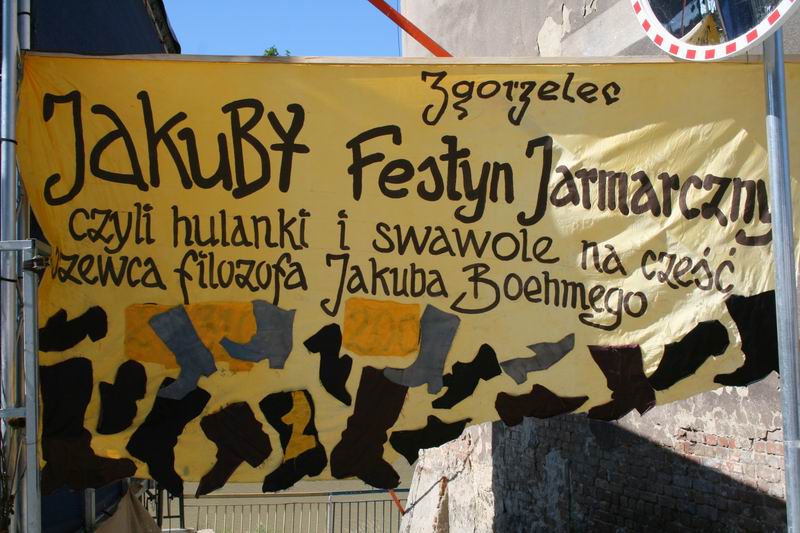 Zgorzelec
JakuBY Festyn Jarmarczny
czyli hulanki i swawole na cześć
szewca filozofa Jakuba Boehmego